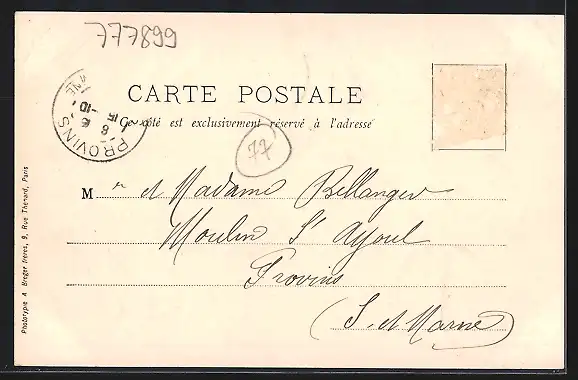 777899
CARTE POSTALE
Ce côté est exclusivement réservé à l'adresse
PROVINS
77
M r et Madame Bellanger
Moulin St Ayoul
Provins
(S. et Marne)
Phototypie A Breger frères, 9, Rue Thénard, Paris